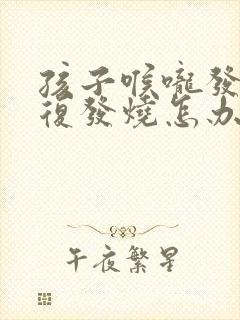 孩子喉嚨發
復發燒怎办
午夜繁星